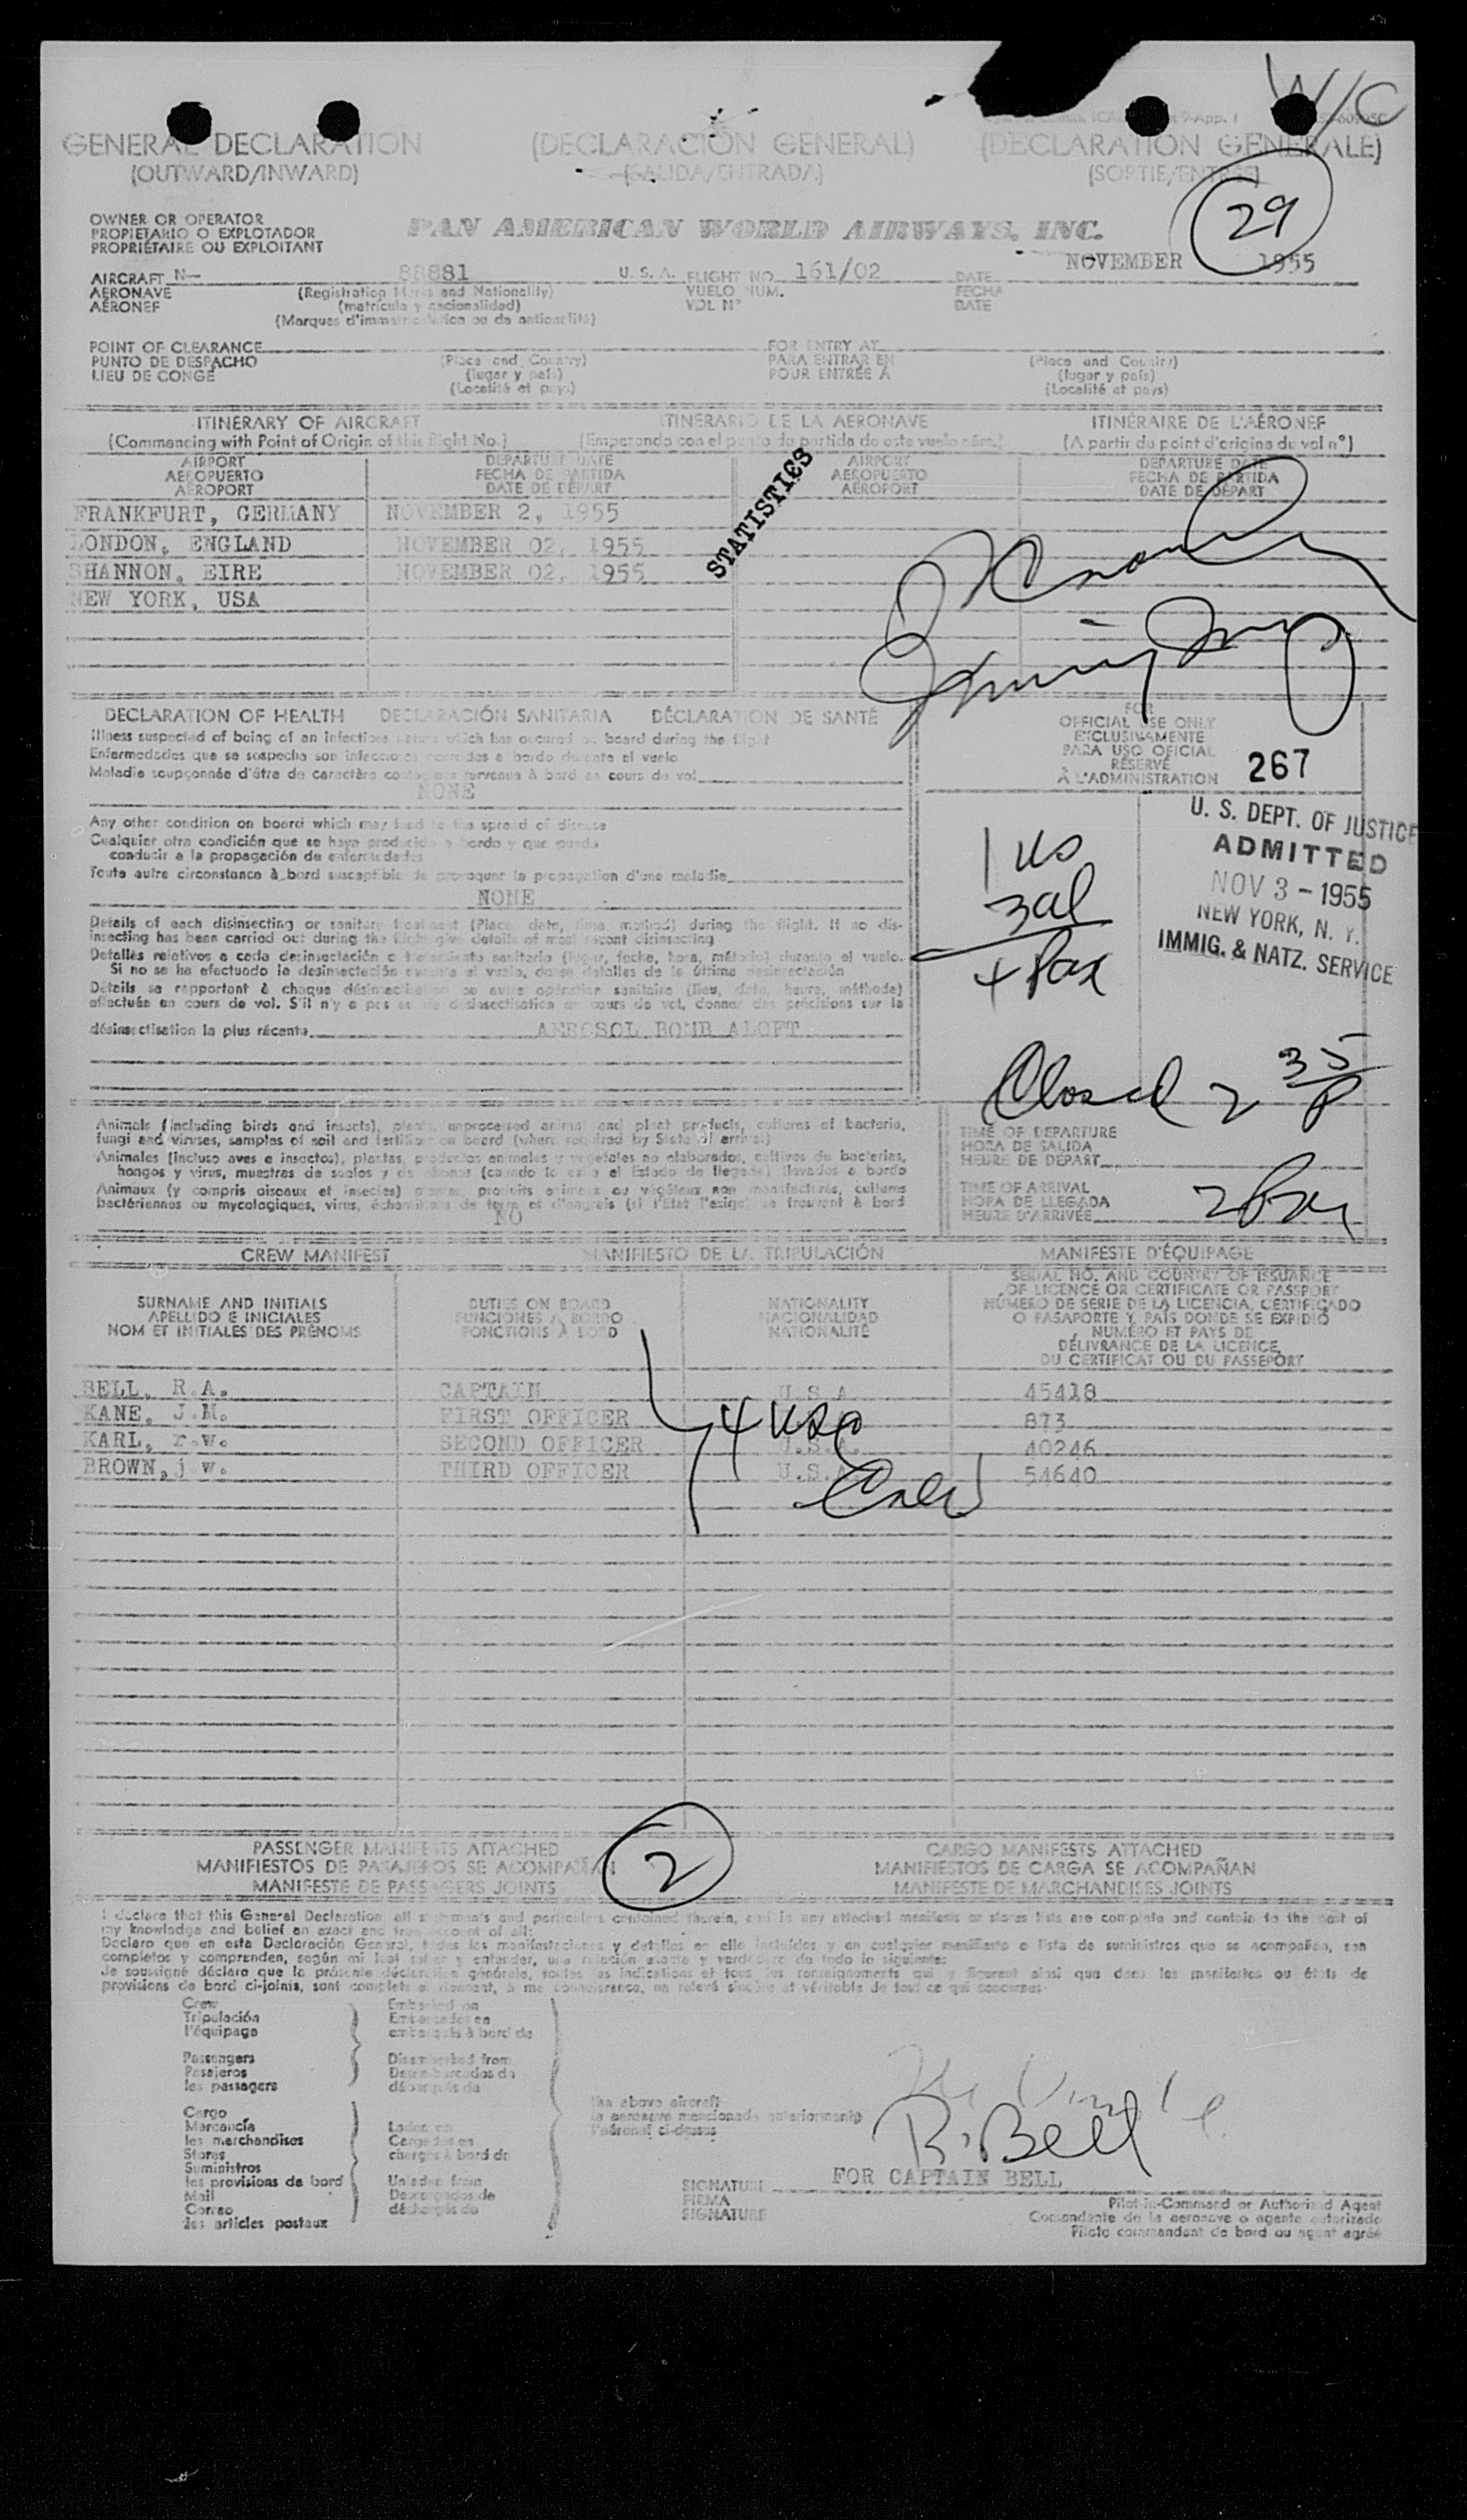 W/C
GENERAL DECLARATION (DECLARACIÓN GENERAL) (DECLARATION GENERALE)
(OUTWARD/INWARD) (SALIDA/ENTRADA) (SORTIE/ENTRÉE)
29
OWNER OR OPERATOR
PROPIETARIO O EXPLOTADOR
PROPRIÉTAIRE OU EXPLOITANT
PAN AMERICAN WORLD AIRWAYS, INC.
AIRCRAFT N- 88881 U. S. A. FLIGHT NO. 161/02 DATE NOVEMBER 1955
AERONAVE (Registration Marks and Nationality) VUELO NUM. FECHA
AÉRONEF (matrícula y nacionalidad) VOL N° DATE
(Marques d'immatriculation ou de nationalité)
POINT OF CLEARANCE FOR ENTRY AT
PUNTO DE DESPACHO (Place and Country) PARA ENTRAR EN (Place and Country)
LIEU DE CONGÉ (lugar y país) POUR ENTRÉE A (lugar y país)
(Localité et pays) (Localité et pays)
ITINERARY OF AIRCRAFT ITINERARIO DE LA AERONAVE ITINÉRAIRE DE L'AÉRONEF
(Commencing with Point of Origin of this Flight No.) (Empezando con el punto de partida de este vuelo núm.) (A partir du point d'origine du vol n°)
AIRPORT DEPARTURE DATE AIRPORT DEPARTURE DATE
AEROPUERTO FECHA DE PARTIDA AEROPUERTO FECHA DE PARTIDA
AÉROPORT DATE DE DÉPART AÉROPORT DATE DE DÉPART
STATISTICS
FRANKFURT, GERMANY NOVEMBER 2, 1955
LONDON, ENGLAND NOVEMBER 02, 1955
SHANNON, EIRE NOVEMBER 02, 1955
NEW YORK, USA
DECLARATION OF HEALTH DECLARACIÓN SANITARIA DÉCLARATION DE SANTÉ
Illness suspected of being of an infectious nature which has occured on board during the flight
Enfermedades que se sospecha son infecciosas ocurridas a bordo durante el vuelo
Maladie soupçonnée d'être de caractère contagieux survenue à bord en cours de vol
NONE
FOR
OFFICIAL USE ONLY
EXCLUSIVAMENTE
PARA USO OFICIAL
RÉSERVÉ
À L'ADMINISTRATION
267
Any other condition on board which may lead to the spread of disease
Cualquier otra condición que se haya producido a bordo y que pueda
conducir a la propagación de enfermedades
Toute autre circonstance à bord susceptible de provoquer la propagation d'une maladie
NONE
U. S. DEPT. OF JUSTICE
ADMITTED
NOV 3 - 1955
NEW YORK, N. Y.
IMMIG. & NATZ. SERVICE
1 us
3 al
4 Pax
Details of each disinsecting or sanitary treatment (Place, date, time, method) during the flight. If no dis-
insecting has been carried out during the flight give details of most recent disinsecting
Detalles relativos a cada desinsectación o tratamiento sanitario (lugar, fecha, hora, método) durante el vuelo.
Si no se ha efectuado la desinsectación durante el vuelo, dense detalles de la última desinsectación
Détails se rapportant à chaque désinsectisation ou autre opération sanitaire (lieu, date, heure, méthode)
effectuée en cours de vol. S'il n'y a pas eu de désinsectisation en cours de vol, donner des précisions sur la
désinsectisation la plus récente. AEROSOL BOMB ALOFT
Closed 2 35 P
Animals (including birds and insects), plants, unprocessed animal and plant products, cultures of bacteria,
fungi and viruses, samples of soil and fertilizer on board (where required by State of arrival)
Animales (incluso aves e insectos), plantas, productos animales y vegetales no elaborados, cultivos de bacterias,
hongos y virus, muestras de suelos y de abonos (cuando lo exija el Estado de llegada) llevados a bordo
Animaux (y compris oiseaux et insectes) plantes, produits animaux ou végétaux non manufacturés, cultures
bactériennes ou mycologiques, virus, échantillons de terre et d'engrais (si l'État l'exige) se trouvant à bord
NO
TIME OF DEPARTURE
HORA DE SALIDA
HEURE DE DÉPART
TIME OF ARRIVAL
HORA DE LLEGADA
HEURE D'ARRIVÉE
CREW MANIFEST MANIFIESTO DE LA TRIPULACIÓN MANIFESTE D'ÉQUIPAGE
SURNAME AND INITIALS
APELLIDO E INICIALES
NOM ET INITIALES DES PRÉNOMS
DUTIES ON BOARD
FUNCIONES A BORDO
FONCTIONS À BORD
NATIONALITY
NACIONALIDAD
NATIONALITÉ
SERIAL NO. AND COUNTRY OF ISSUANCE
OF LICENCE OR CERTIFICATE OR PASSPORT
NÚMERO DE SERIE DE LA LICENCIA, CERTIFICADO
O PASAPORTE Y PAÍS DONDE SE EXPIDIÓ
NUMÉRO ET PAYS DE
DÉLIVRANCE DE LA LICENCE,
DU CERTIFICAT OU DU PASSEPORT
BELL, R.A. CAPTAIN U.S.A. 45418
KANE, J.M. FIRST OFFICER 873
KARL, r.w. SECOND OFFICER U.S.A. 40246
BROWN, j w. THIRD OFFICER U.S.A. 54640
4 USC
Crew
PASSENGER MANIFESTS ATTACHED CARGO MANIFESTS ATTACHED
MANIFIESTOS DE PASAJEROS SE ACOMPAÑAN MANIFIESTOS DE CARGA SE ACOMPAÑAN
MANIFESTE DE PASSAGERS JOINTS MANIFESTE DE MARCHANDISES JOINTS
2
I declare that this General Declaration all statements and particulars contained therein, and in any attached manifests or stores lists are complete and contain to the best of
my knowledge and belief an exact and true account of all:
Declaro que en esta Declaración General, todas las manifestaciones y detalles en ella incluidos y en cualquier manifiesto o lista de suministros que se acompañen, son
completos y comprenden, según mi leal saber y entender, una relación exacta y verdadera de todo lo siguiente:
Je soussigné déclare que la présente déclaration générale, toutes les indications et tous les renseignements qui y figurent ainsi que dans les manifestes ou états de
provisions de bord ci-joints, sont complets et donnent, à ma connaissance, un relevé sincère et véritable de tout ce qui concerne:
Crew Embarked on
Tripulación Embarcados en
l'équipage embarqués à bord de
Passengers Disembarked from
Pasajeros Desembarcados de
les passagers débarqués de
Cargo the above aircraft
Mercancía Laden on la aeronave mencionada anteriormente
les marchandises Cargados en l'aéronef ci-dessus
Stores chargés à bord de
Suministros
les provisions de bord Unladen from
Mail Descargados de
Correo déchargés de
les articles postaux
R. Bell
SIGNATURE FOR CAPTAIN BELL
FIRMA
SIGNATURE
Pilot-in-Command or Authorized Agent
Comandante de la aeronave o agente autorizado
Pilote commandant de bord ou agent agréé